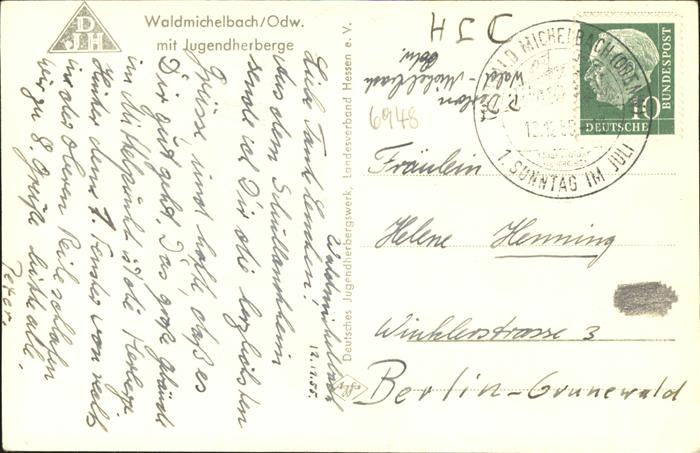 DJH
Waldmichelbach/Odw.
mit Jugendherberge
Waldmichelbach
12.12.55.
Liebe Tante Lenchen!
Aus dem Schullandheim
sende ich Dir die herzlichsten
Grüsse und hoffe, daß es
Dir gut geht. Das große Gebäude
im Mittelpunkt ist die Herberge.
Hinter dem 1. Fenster von
in der oberen Reihe schlafen
wir zu 8. Grüße bitte alle.
Peter.
Deutsches Jugendherbergswerk, Landesverband Hessen e. V.
DJH
Wald-Michelbach
Odw.
6948
WALD MICHELBACH (ODENW)
12.12.55
1. SONNTAG IM JULI
DEUTSCHE BUNDESPOST
10
Fräulein
Helene Henning
Winklerstrasse 3
Berlin-Grunewald